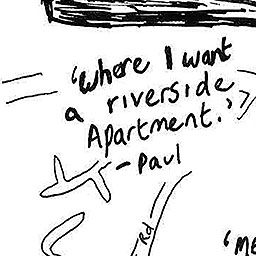 'where I want
a riverside
Apartment.'
- Paul
Rd
'ME